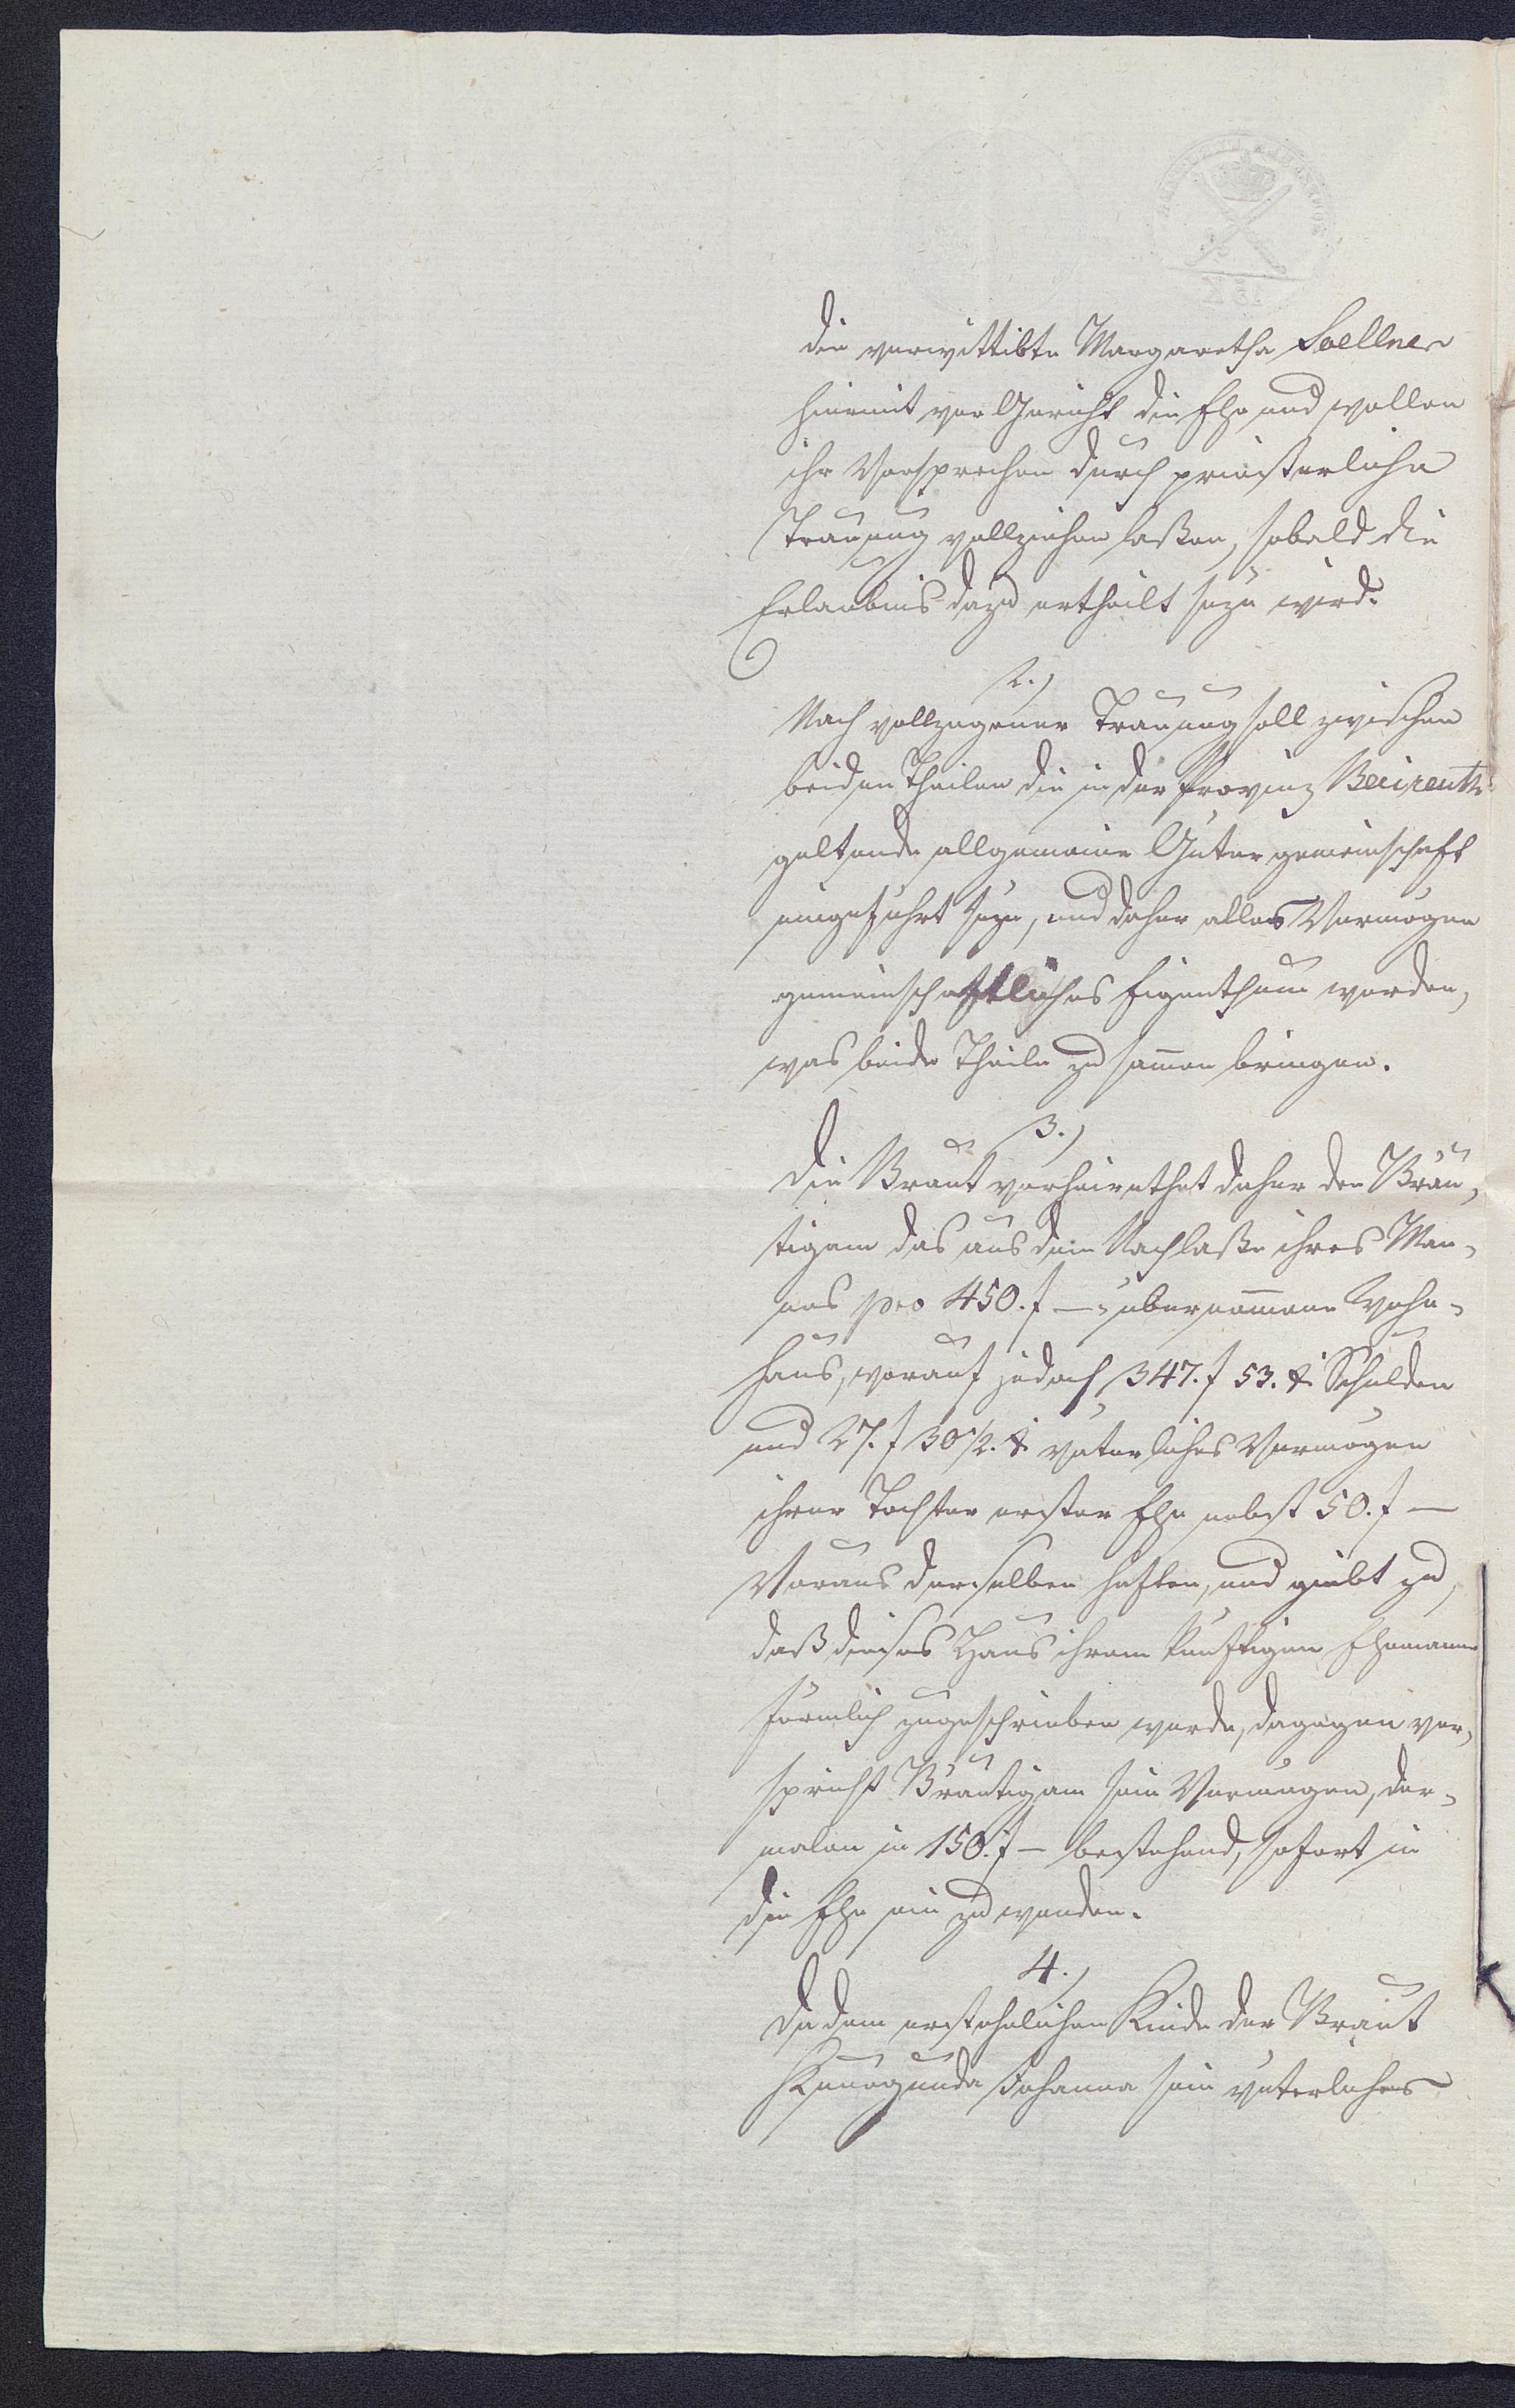 die verwittibte Margaretha Soellner
hiermit vor Gericht die Ehe und wollen
ihr Versprechen durch priesterliche
Trauung vollziehen laßen, sobald die
Erlaubnis dazu ertheilt seyn wird.
2.)
Nach vollzogener Trauung soll zwischen
beiden Theilen die in der Provinz Baireuth
geltende allgemeine Gütergemeinschaft
eingeführt seyn, und daher alles Vermögen
gemeinschaftliches Eigenthum werden,
was beide Theile zusam̄en bringen.
3.)
Die Braut verheirathet daher den Bräu-
tigam das aus dem Nachlaße ihres Man-
nes pro 450. f — übernom̄ene Wohn-
haus, worauf jedoch 347. f 53. x. Schulden
und 27. f 30 1/2. x. väterliches Vermögen
ihrer Tochter erster Ehe nebst 50. f —
Voraus derselben haften, und giebt zu,
daß dieses Haus ihrem künftigen Ehemanne
förmlich zugeschrieben werde, dagegen ver-
spricht Bräutigam sein Vermögen, der-
malen in 150. f — bestehend, sofort in
die Ehe ein zu wenden.
4.)
Da dem erstehelichen Kinde der Braut
Kunogunda Johanna sein väterliches